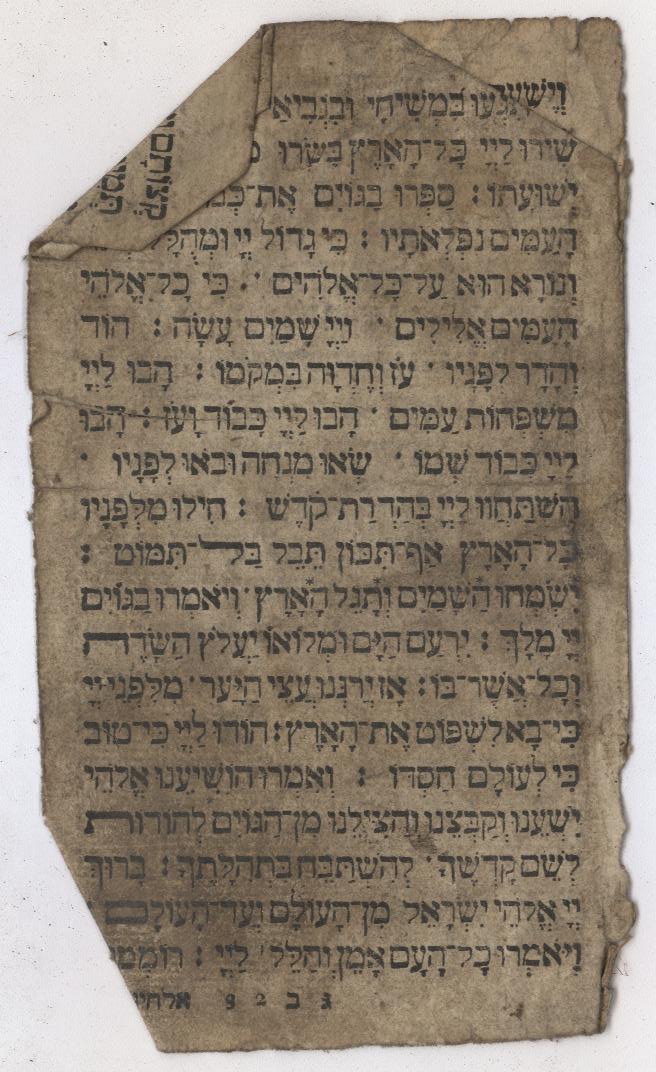 תִּגְּעוּ בִמְשִׁיחָי וּבִנְבִיאַ
שִׁירוּ לַיְיָ כָּל־הָאָרֶץ בַּשְּׂרוּ
יְשׁוּעָתוֹ : סַפְּרוּ בַגּוֹיִם אֶת־
הָעַמִּים נִפְלְאֹתָיו : כִּי גָדוֹל יְיָ וּמְהֻלָּל
וְנוֹרָא הוּא עַל־כָּל־אֱלֹהִים · כִּי כָּל־אֱלֹהֵי
הָעַמִּים אֱלִילִים · וַיְיָ שָׁמַיִם עָשָׂה : הוֹד
וְהָדָר לְפָנָיו · עֹז וְחֶדְוָה בִּמְקֹמוֹ : הָבוּ לַיְיָ
מִשְׁפְּחוֹת עַמִּים · הָבוּ לַיְיָ כָּבוֹד וָעֹז : הָבוּ
לַיְיָ כְּבוֹד שְׁמוֹ · שְׂאוּ מִנְחָה וּבֹאוּ לְפָנָיו ·
הִשְׁתַּחֲווּ לַיְיָ בְּהַדְרַת־קֹדֶשׁ : חִילוּ מִלְּפָנָיו
כָּל־הָאָרֶץ אַף־תִּכּוֹן תֵּבֵל בַּל־תִּמּוֹט :
יִשְׂמְחוּ הַשָּׁמַיִם וְתָגֵל הָאָרֶץ · וְיֹאמְרוּ בַגּוֹיִם
יְיָ מָלָךְ : יִרְעַם הַיָּם וּמְלוֹאוֹ יַעֲלֹץ הַשָּׂדֶה
וְכָל־אֲשֶׁר־בּוֹ : אָז יְרַנְּנוּ עֲצֵי הַיָּעַר · מִלִּפְנֵי יְיָ
כִּי־בָא לִשְׁפּוֹט אֶת־הָאָרֶץ : הוֹדוּ לַיְיָ כִּי־טוֹב
כִּי לְעוֹלָם חַסְדּוֹ : וְאִמְרוּ הוֹשִׁיעֵנוּ אֱלֹהֵי
יִשְׁעֵנוּ וְקַבְּצֵנוּ וְהַצִּילֵנוּ מִן־הַגּוֹיִם לְהוֹדוֹת
לְשֵׁם קָדְשֶׁךָ · לְהִשְׁתַּבֵּחַ בִּתְהִלָּתֶךָ : בָּרוּךְ
יְיָ אֱלֹהֵי יִשְׂרָאֵל מִן־הָעוֹלָם וְעַד־הָעוֹלָם ·
וַיֹּאמְרוּ כָל־הָעָם אָמֵן וְהַלֵּל לַיְיָ :
ג ב 2 9